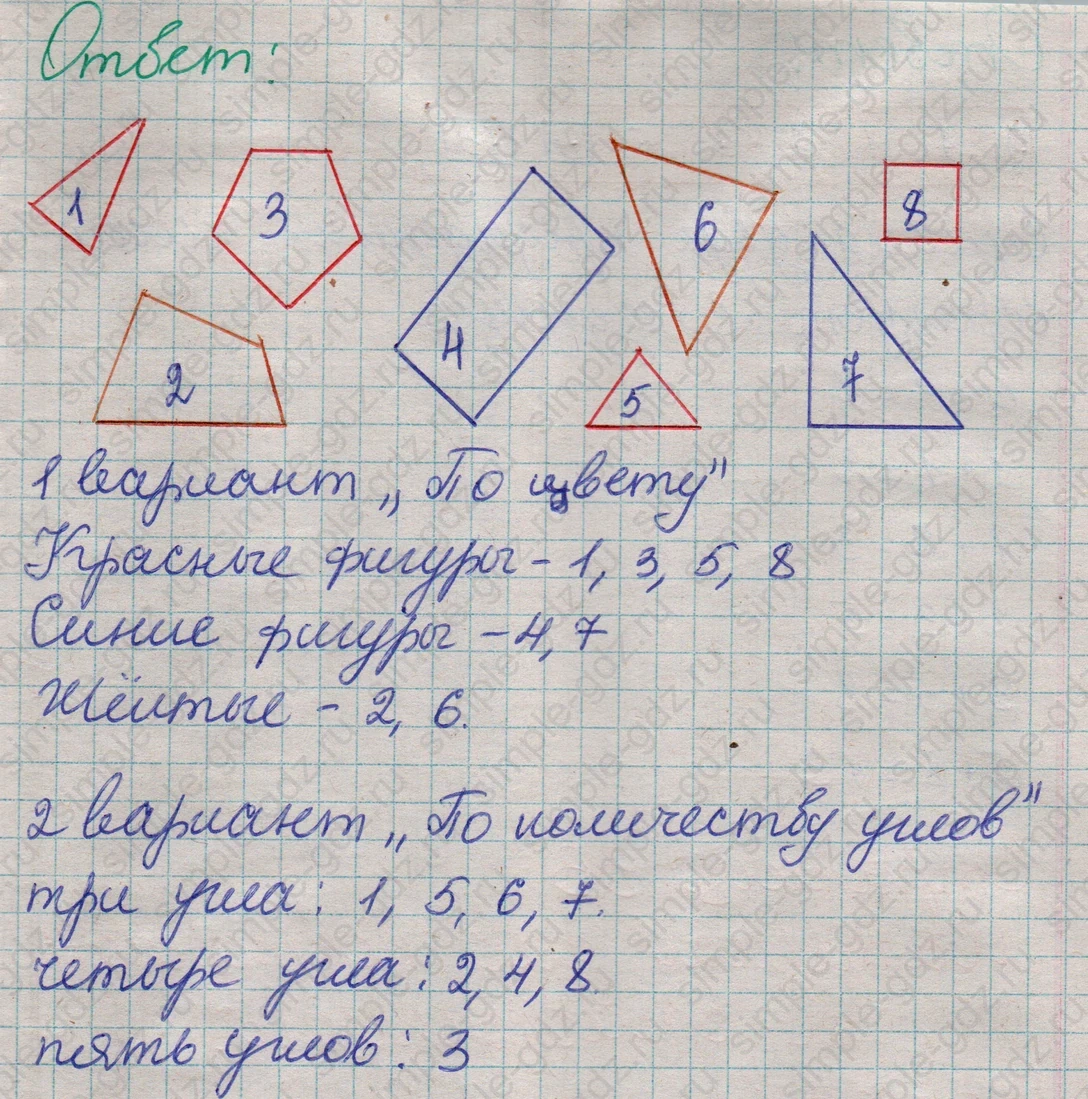 Ответ:
1
3
6
8
2
4
5
7
1 вариант „По цвету"
Красные фигуры - 1, 3, 5, 8
Синие фигуры - 4, 7
Жёлтые - 2, 6.
2 вариант „По количеству углов"
три угла: 1, 5, 6, 7.
четыре угла: 2, 4, 8.
пять углов: 3
simple-gdz.ru